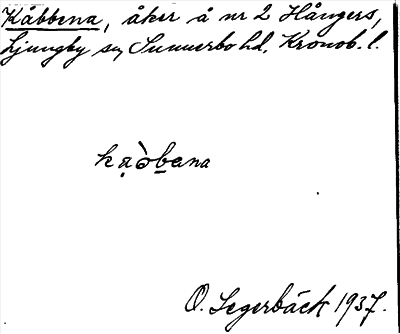 Kåbbena, åker å nr 2 Hångers,
Ljungby sn, Sunnerbo hd. Kronob. l.
kạòbena
O. Segerbäck 1937.